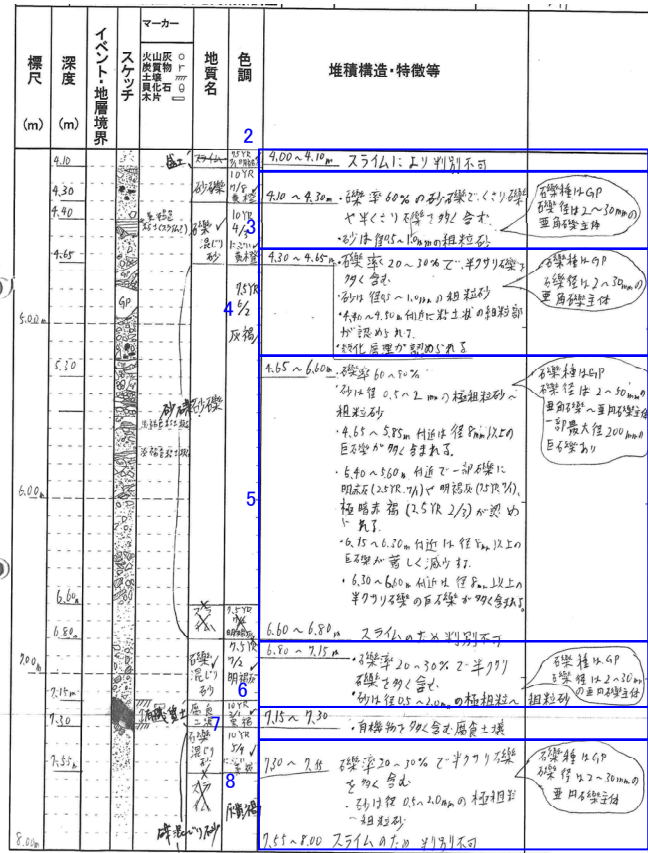 マーカー
標尺
(m)
深度
(m)
イベント・地層境界
スケッチ
火山灰
炭物
土壌
貝化石
木片
地質名
色調
堆積構造・特徴等
2
3
4
5
6
7
8
4.10
4.30
4.40
4.65
5.00m
5.30
6.00m
6.60m
6.80m
7.00m
7.15m
7.30
7.55m
8.00m
GP
盛土
スライム
砂礫
10YR
礫混じり砂
10YR 4/3
7.5YR 6/2
灰褐
砂礫
7.5YR
礫混じり砂
7.5YR 7/2
明褐灰
腐植質土
10YR
礫混じり砂
10YR 5/4
スライム
礫混じり砂
4.00〜4.10m スライムにより判別不可
4.10〜4.30m ・礫率60%の砂礫で、くさり礫
や半くさり礫を多く含む
・砂は径0.5〜1.0mmの粗粒砂
礫種はGP
礫径は2〜30mmの
亜角礫主体
4.30〜4.65m ・礫率20〜30%で、半クサリ礫を
多く含む
・砂は径0.5〜1.0mmの粗粒砂
・4.40〜4.50m付近に粘土状の細粒部
が認められる
・級化層理が認められる
礫種はGP
礫径は2〜30mmの
亜角礫主体
4.65〜6.60m ・礫率60〜80%
・砂は径0.5〜2mmの極粗粒砂〜
粗粒砂
・4.65〜5.85m付近は径8mm以上の
巨礫が多く含まれる。
・5.40〜5.60m付近で一部礫に
明赤灰(2.5YR 7/1)や明褐灰(7.5YR 7/1)、
極暗赤褐(2.5YR 2/3)が認め
られる
・6.15〜6.30m付近は径8mm以上の
巨礫が著しく減少する。
・6.30〜6.60m付近は径8mm以上の
半クサリ礫の巨礫が多く含まれる。
礫種はGP
礫径は2〜50mmの
亜角礫〜亜円礫主体
一部最大径200mmの
巨礫あり
6.60〜6.80m スライムのため判別不可
6.80〜7.15m
・礫率20〜30%で半クサリ
礫を多く含む
・砂は径0.5〜2.0mmの極粗粒〜粗粒砂
礫種はGP
礫径は2〜30mm
の亜円礫主体
7.15〜7.30
・有機物を多く含む腐食土壌
7.30〜7.55 礫率20〜30%で半クサリ礫
を多く含む
・砂は径0.5〜2.0mmの極粗粒
〜粗粒砂
礫種はGP
礫径は2〜30mmの
亜円礫主体
7.55〜8.00 スライムのため判別不可